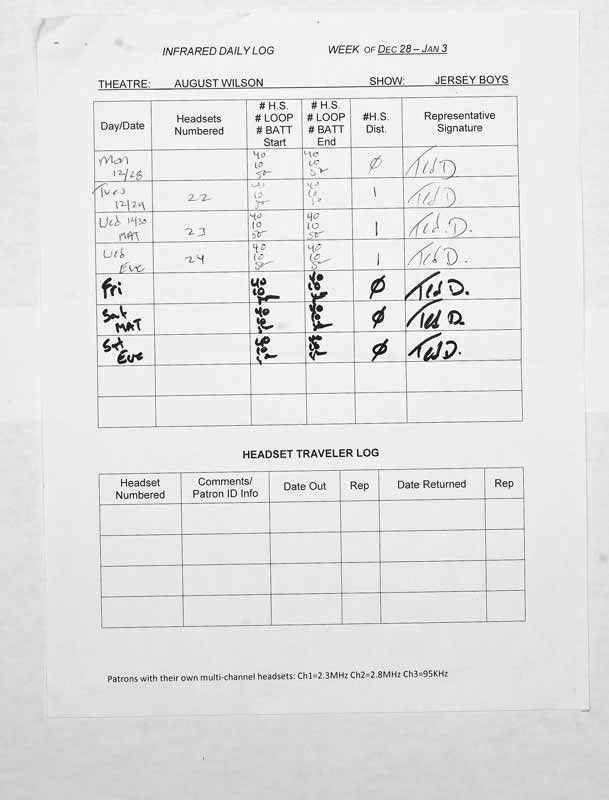 INFRARED DAILY LOG WEEK OF DEC 28 – JAN 3
THEATRE: AUGUST WILSON SHOW: JERSEY BOYS
Day/Date Headsets Numbered # H.S. # LOOP # BATT Start # H.S. # LOOP # BATT End #H.S. Dist. Representative Signature
Mon 12/28 40 10 50 40 10 50 Ø Ted D
Tues 12/29 22 40 10 50 40 10 50 1 Ted D
Wed 1430 MAT 23 40 10 50 40 10 50 1 Ted D.
Wed Eve 24 40 10 50 40 10 50 1 Ted D.
Fri Ø Ted D.
Sat MAT Ø Ted D.
Sat Eve Ø Ted D.
HEADSET TRAVELER LOG
Headset Numbered Comments/ Patron ID Info Date Out Rep Date Returned Rep
Patrons with their own multi-channel headsets: Ch1=2.3MHz Ch2=2.8MHz Ch3=95KHz